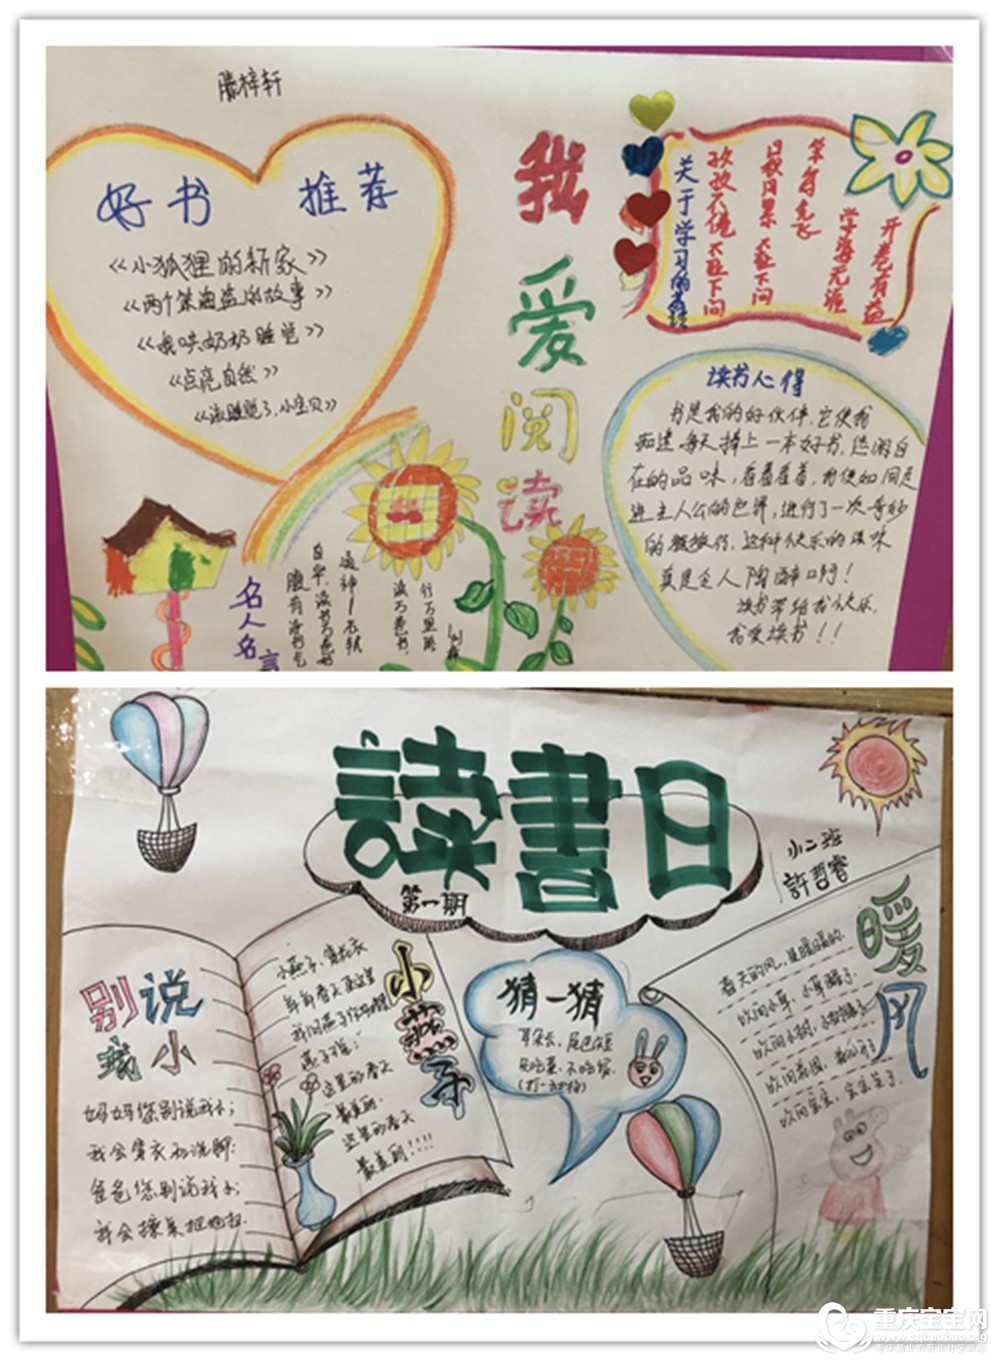 滕梓轩
好书 推荐
《小狐狸的新家》
《两个笨海盗的故事》
《我哄奶奶睡觉》
《点亮自然》
《该睡觉了,小宝贝》
我爱阅读
关于学习的
孜孜不倦 不耻下问
日积月累 不耻下问
笨鸟先飞
学海无涯
开卷有益
读书心得
书是我的好伙伴,它使我
知道每天捧上一本好书,悠闲自
在的品味,看着看着,我便如同走
进主人公的世界,进行了一次奇妙
的旅行,这种快乐的滋味
真是令人陶醉啊!
读书带给我快乐,
我爱读书!!
名人名言
腹有诗书气
自华,读书万卷始
通神!—苏轼
读万卷书,
行万里路
—刘彝
讀書日
第一期
小二班
許哲睿
别说我小
妈妈您别说我小;
我会穿衣和洗脚;
爸爸您别说我小;
我会擦桌把地扫.
小燕子
小燕子,穿花衣
年年春天来这里
我问燕子你为啥来
燕子说:
这里的春天
最美丽.
这里的春天
最美丽!!!!
猜一猜
耳朵长,尾巴短
只吃菜,不吃饭
(打一动物)
暖风
春天的风,是暖暖的.
吹问小草,小草醒了.
吹问小树,小树绿了
吹问花园,花儿开了
吹问宝宝,宝宝笑了.
重庆宝宝网
www.cqbaobao.org